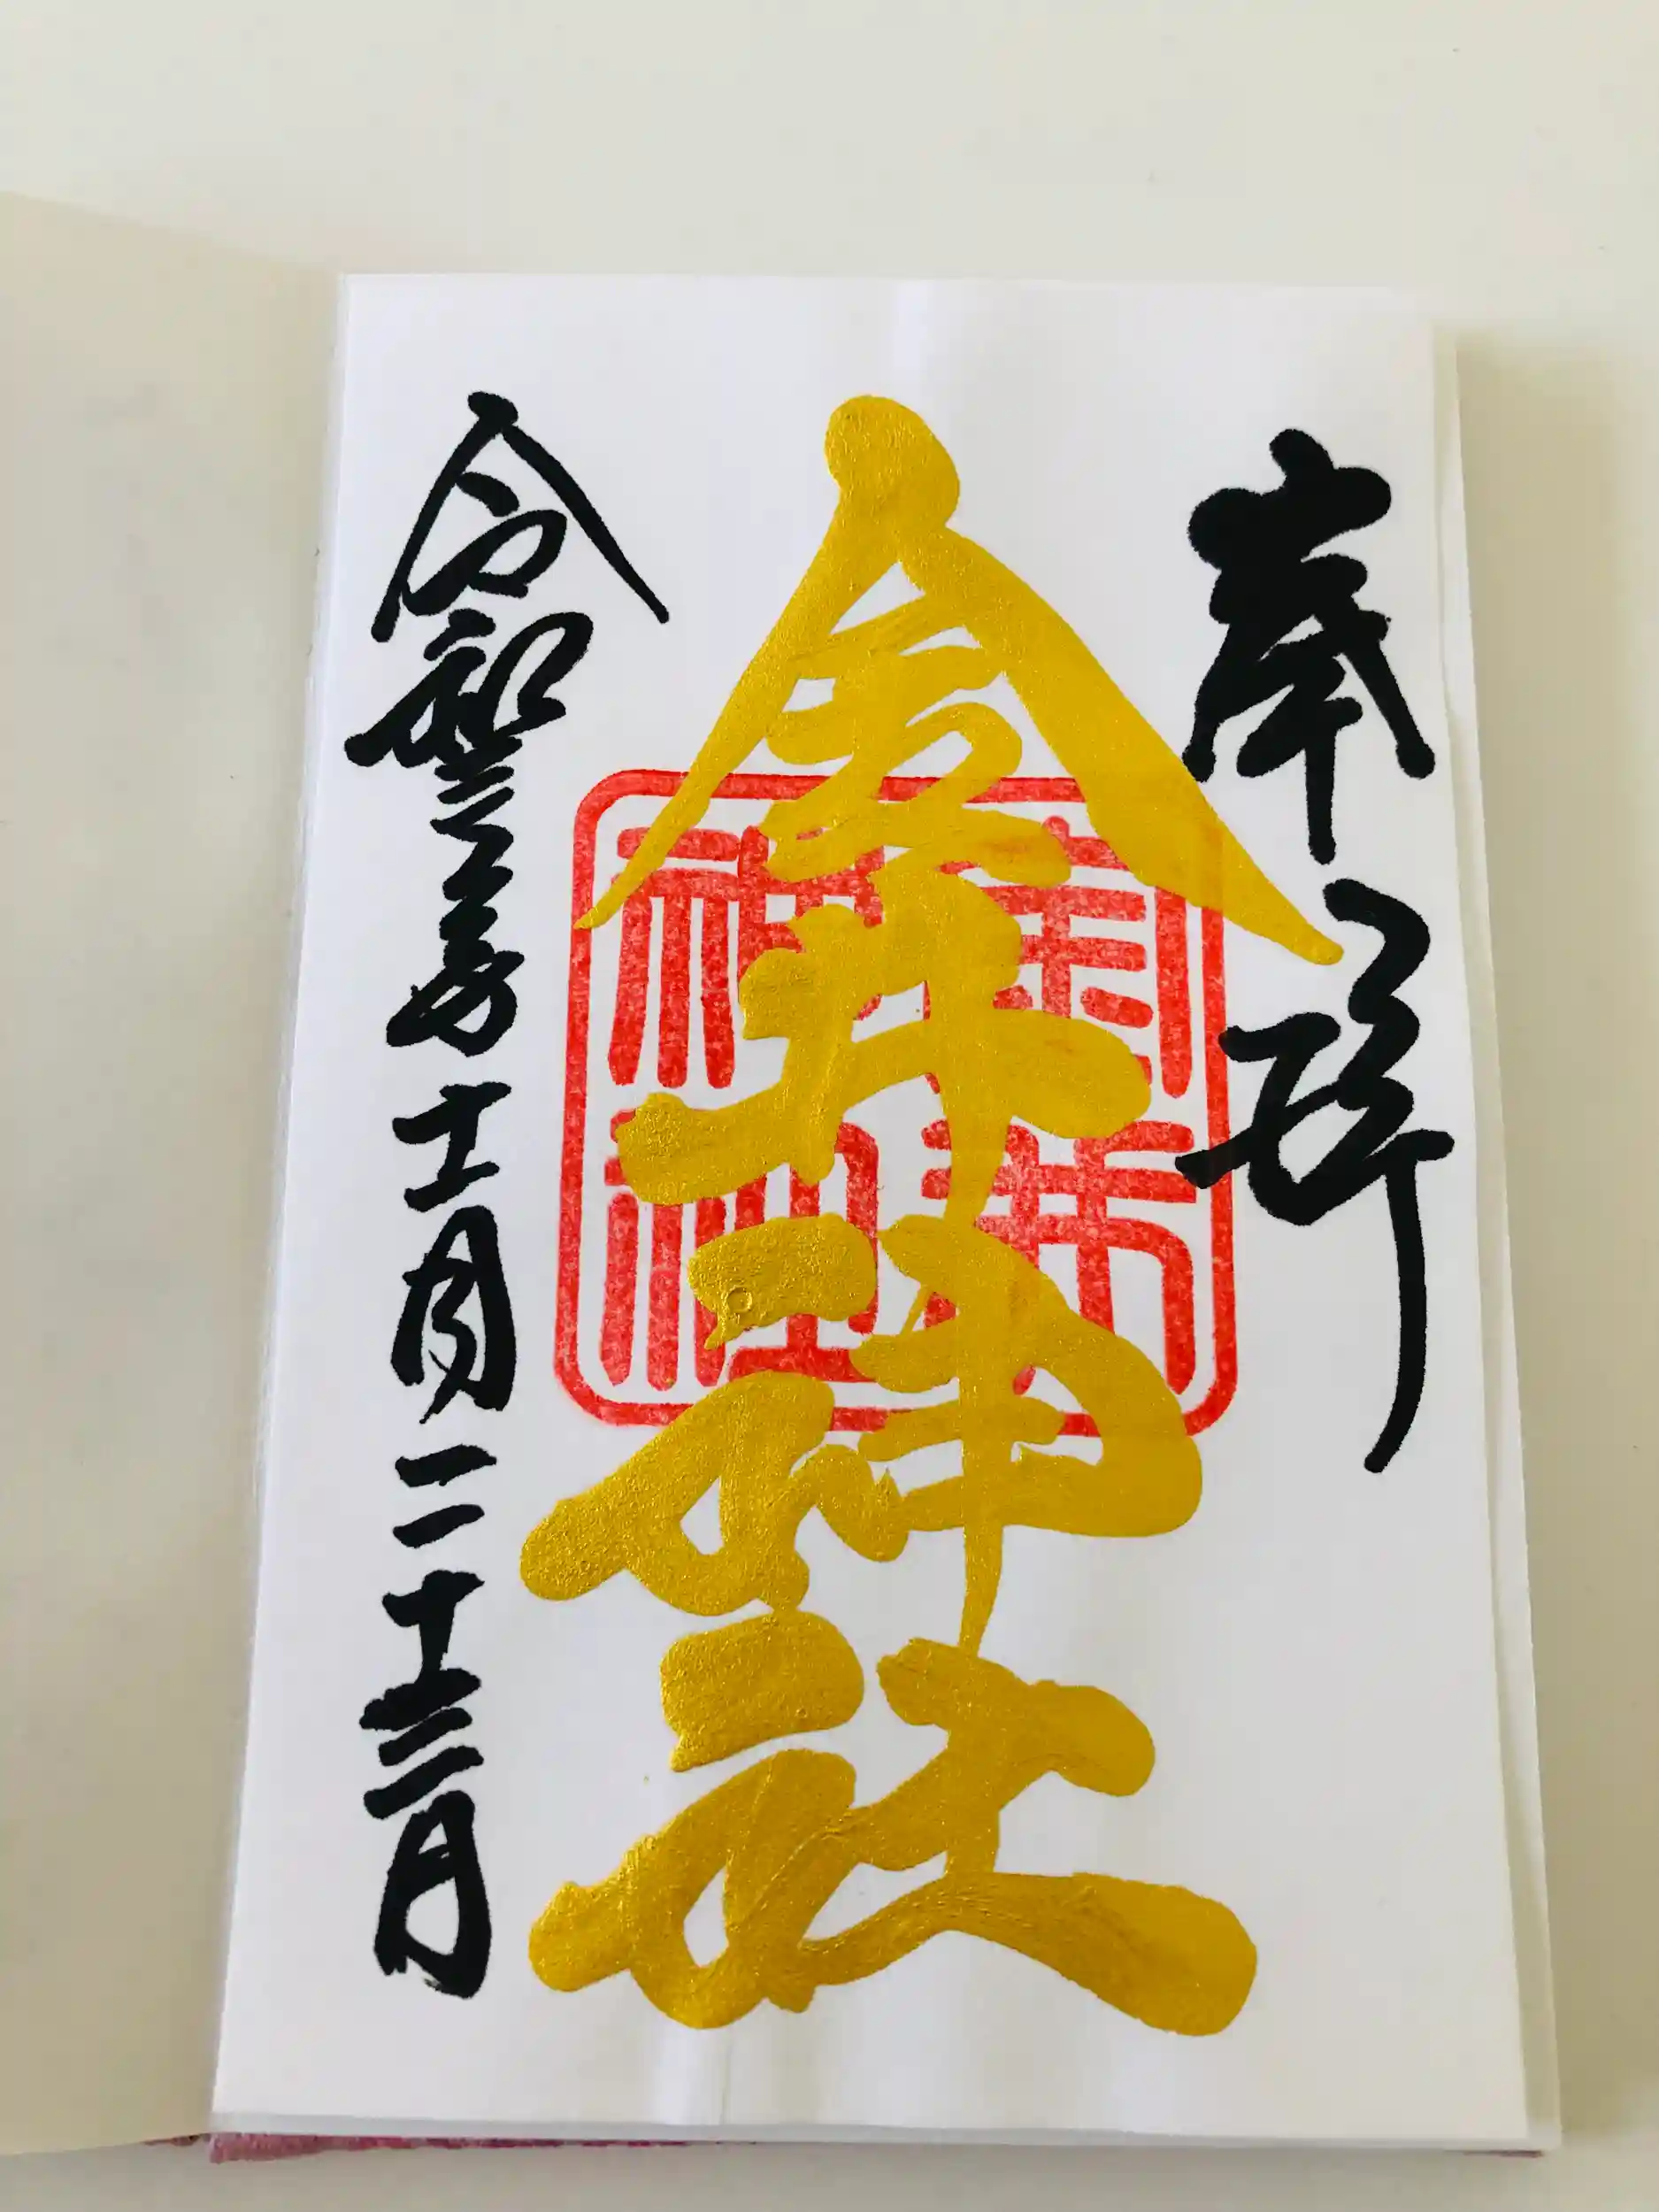 奉拝
金井神社
金井神社
令和三年十一月二十三日